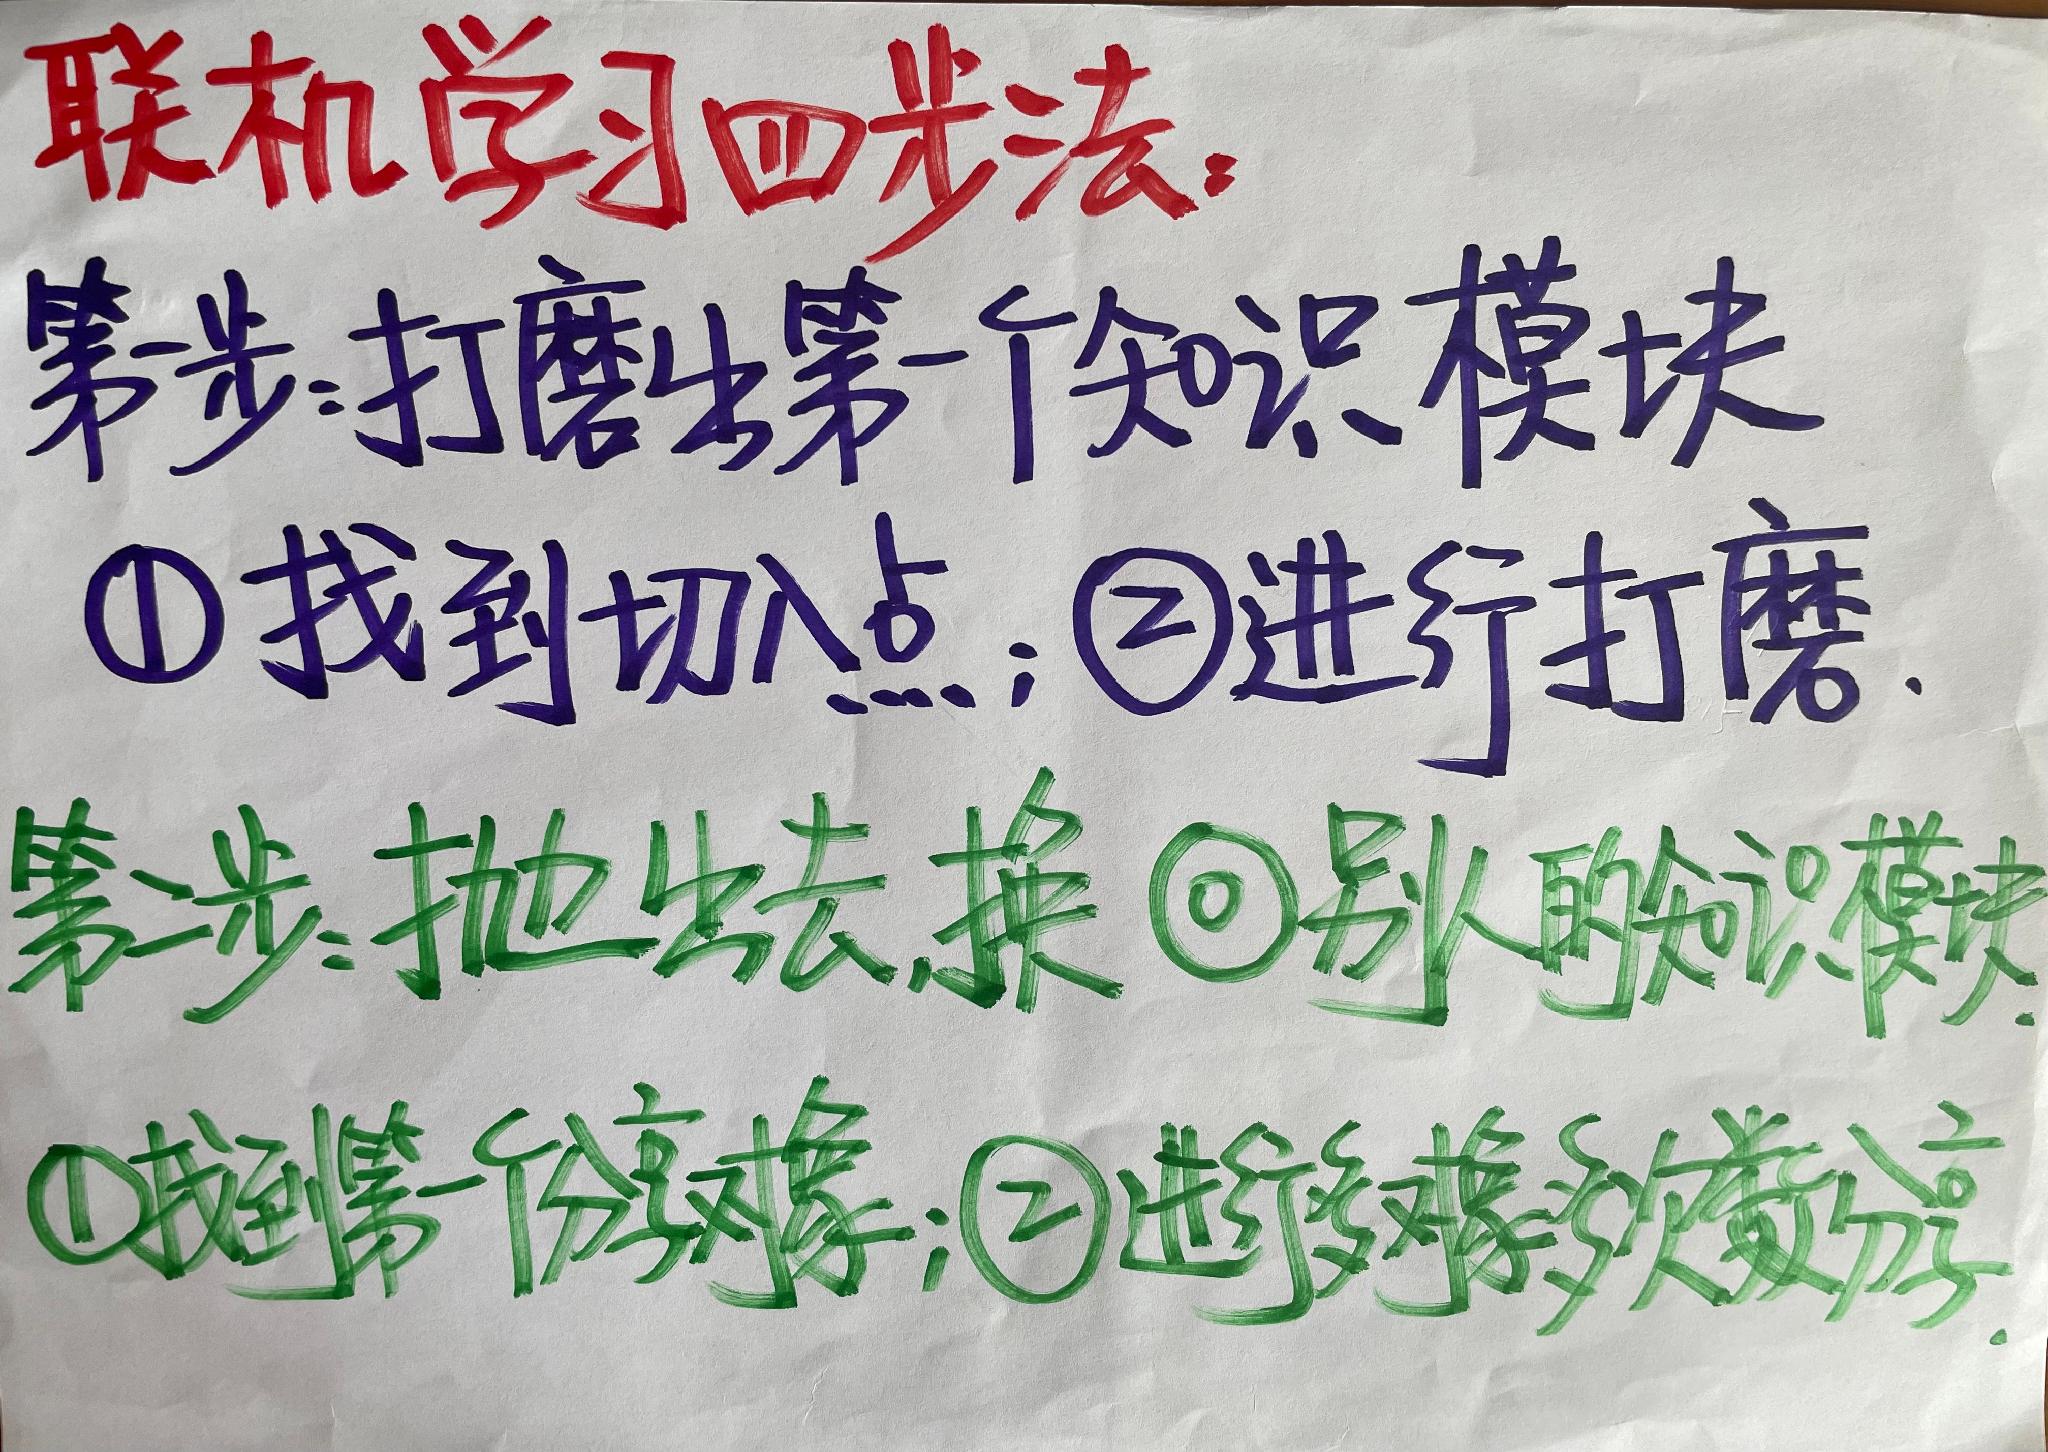 联机学习四步法:
第一步:打磨出第一个知识模块
①找到切入点;②进行打磨.
第二步:抛出去,换⓪别人的知识模块.
①找到第一个分享对像;②进行多对像多次数分享.